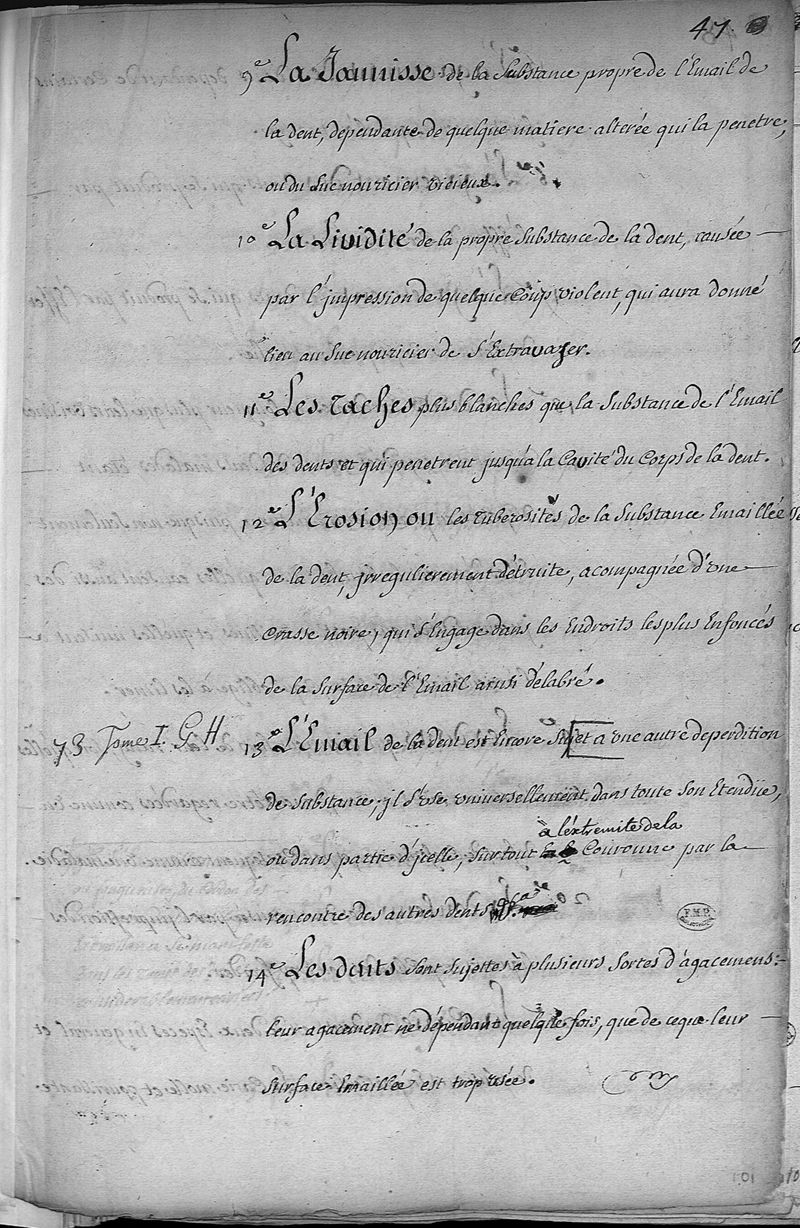 47
9e La Jaunisse de la Substance propre de l'Email de
la dent, dépendante de quelque matiere alterée qui la penetre,
ou du suc nouricier vidieux.
10e La Lividité de la propre Substance de la dent, causée
par l'jmpression de quelque Coup violent, qui aura donné
lieu au suc nouricier de s'Extravazer.
11e Les Taches plus blanches que la Substance de l'Email
des dents et qui penetrent jusqu'a la Cavité du Corps de la dent.
12e L'Erosion ou les tuberosités de la Substance Emaillée
de la dent, jrregulierement détruite, acompagnée d'une
Crasse noire, qui s'Engage dans les Endroits les plus Enfoncés
de la Surface de l'Email ainsi délabré.
73 Tome I. G H
13e L'Email de la dent est Encore Sujet a une autre deperdition
de Substance, jl s'use universellement dans toute son Etendüe,
à l'extremité de la
ou dans partie d'jcelle, surtout Couronne par la
rencontre des autres dents
14e Les dents sont Sujettes à plusieurs Sortes d'agacemens:
leur agacement ne dépendant quelque fois, que de ceque leur
Surface Emaillée est trop usée.
101